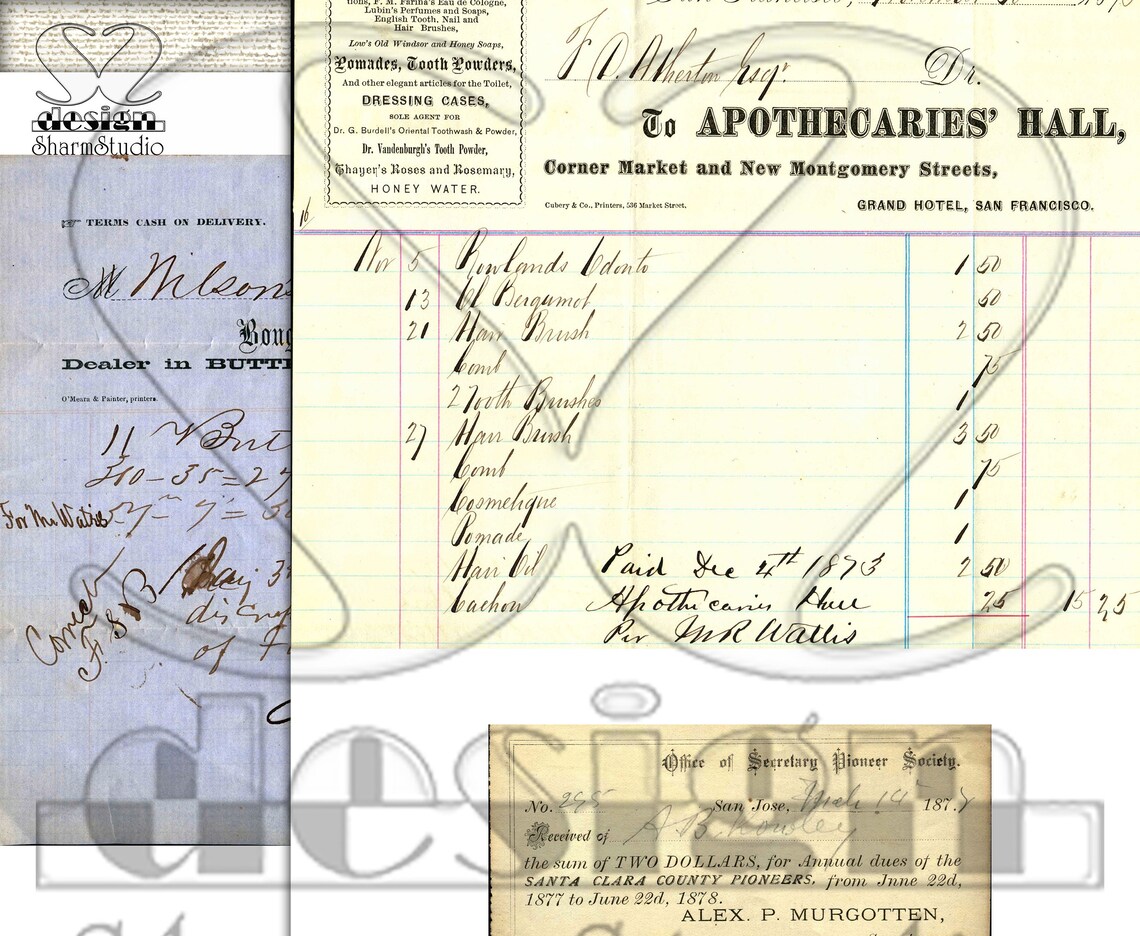 tions, F. M. Farina's Eau de Cologne,
Lubin's Perfumes and Soaps,
English Tooth, Nail and
Hair Brushes,
Low's Old Windsor and Honey Soaps,
Pomades, Tooth Powders,
And other elegant articles for the Toilet,
DRESSING CASES,
SOLE AGENT FOR
Dr. G. Burdell's Oriental Toothwash & Powder,
Dr. Vandenburgh's Tooth Powder,
Thayer's Roses and Rosemary,
HONEY WATER.
F. D. Atherton Esqr. Dr.
To APOTHECARIES' HALL,
Corner Market and New Montgomery Streets,
Cubery & Co., Printers, 536 Market Street.
GRAND HOTEL, SAN FRANCISCO.
16
Nov 5 Rowlands Odonto 1 50
13 Ol Bergamot 50
21 Hair Brush 2 50
Comb 75
2 Tooth Brushes 1
27 Hair Brush 3 50
Comb 75
Cosmetique 1
Pomade 1
Hair Oil Paid Dec 4th 1873 2 50
Cachou Apothecaries Hall 25 15 25
Per MR Wattis
design
SharmStudio
TERMS CASH ON DELIVERY.
M Wilson
Boug
Dealer in BUTT
O'Meara & Painter, printers.
11
210-35=27
For Mr Wattis
Correct
F. S. B
of
design
Office of Secretary Pioneer Society.
No. 295 San Jose, Mch 14 187
Received of A. B. Rowley
the sum of TWO DOLLARS, for Annual dues of the
SANTA CLARA COUNTY PIONEERS, from Jnne 22d,
1877 to June 22d, 1878.
ALEX. P. MURGOTTEN,